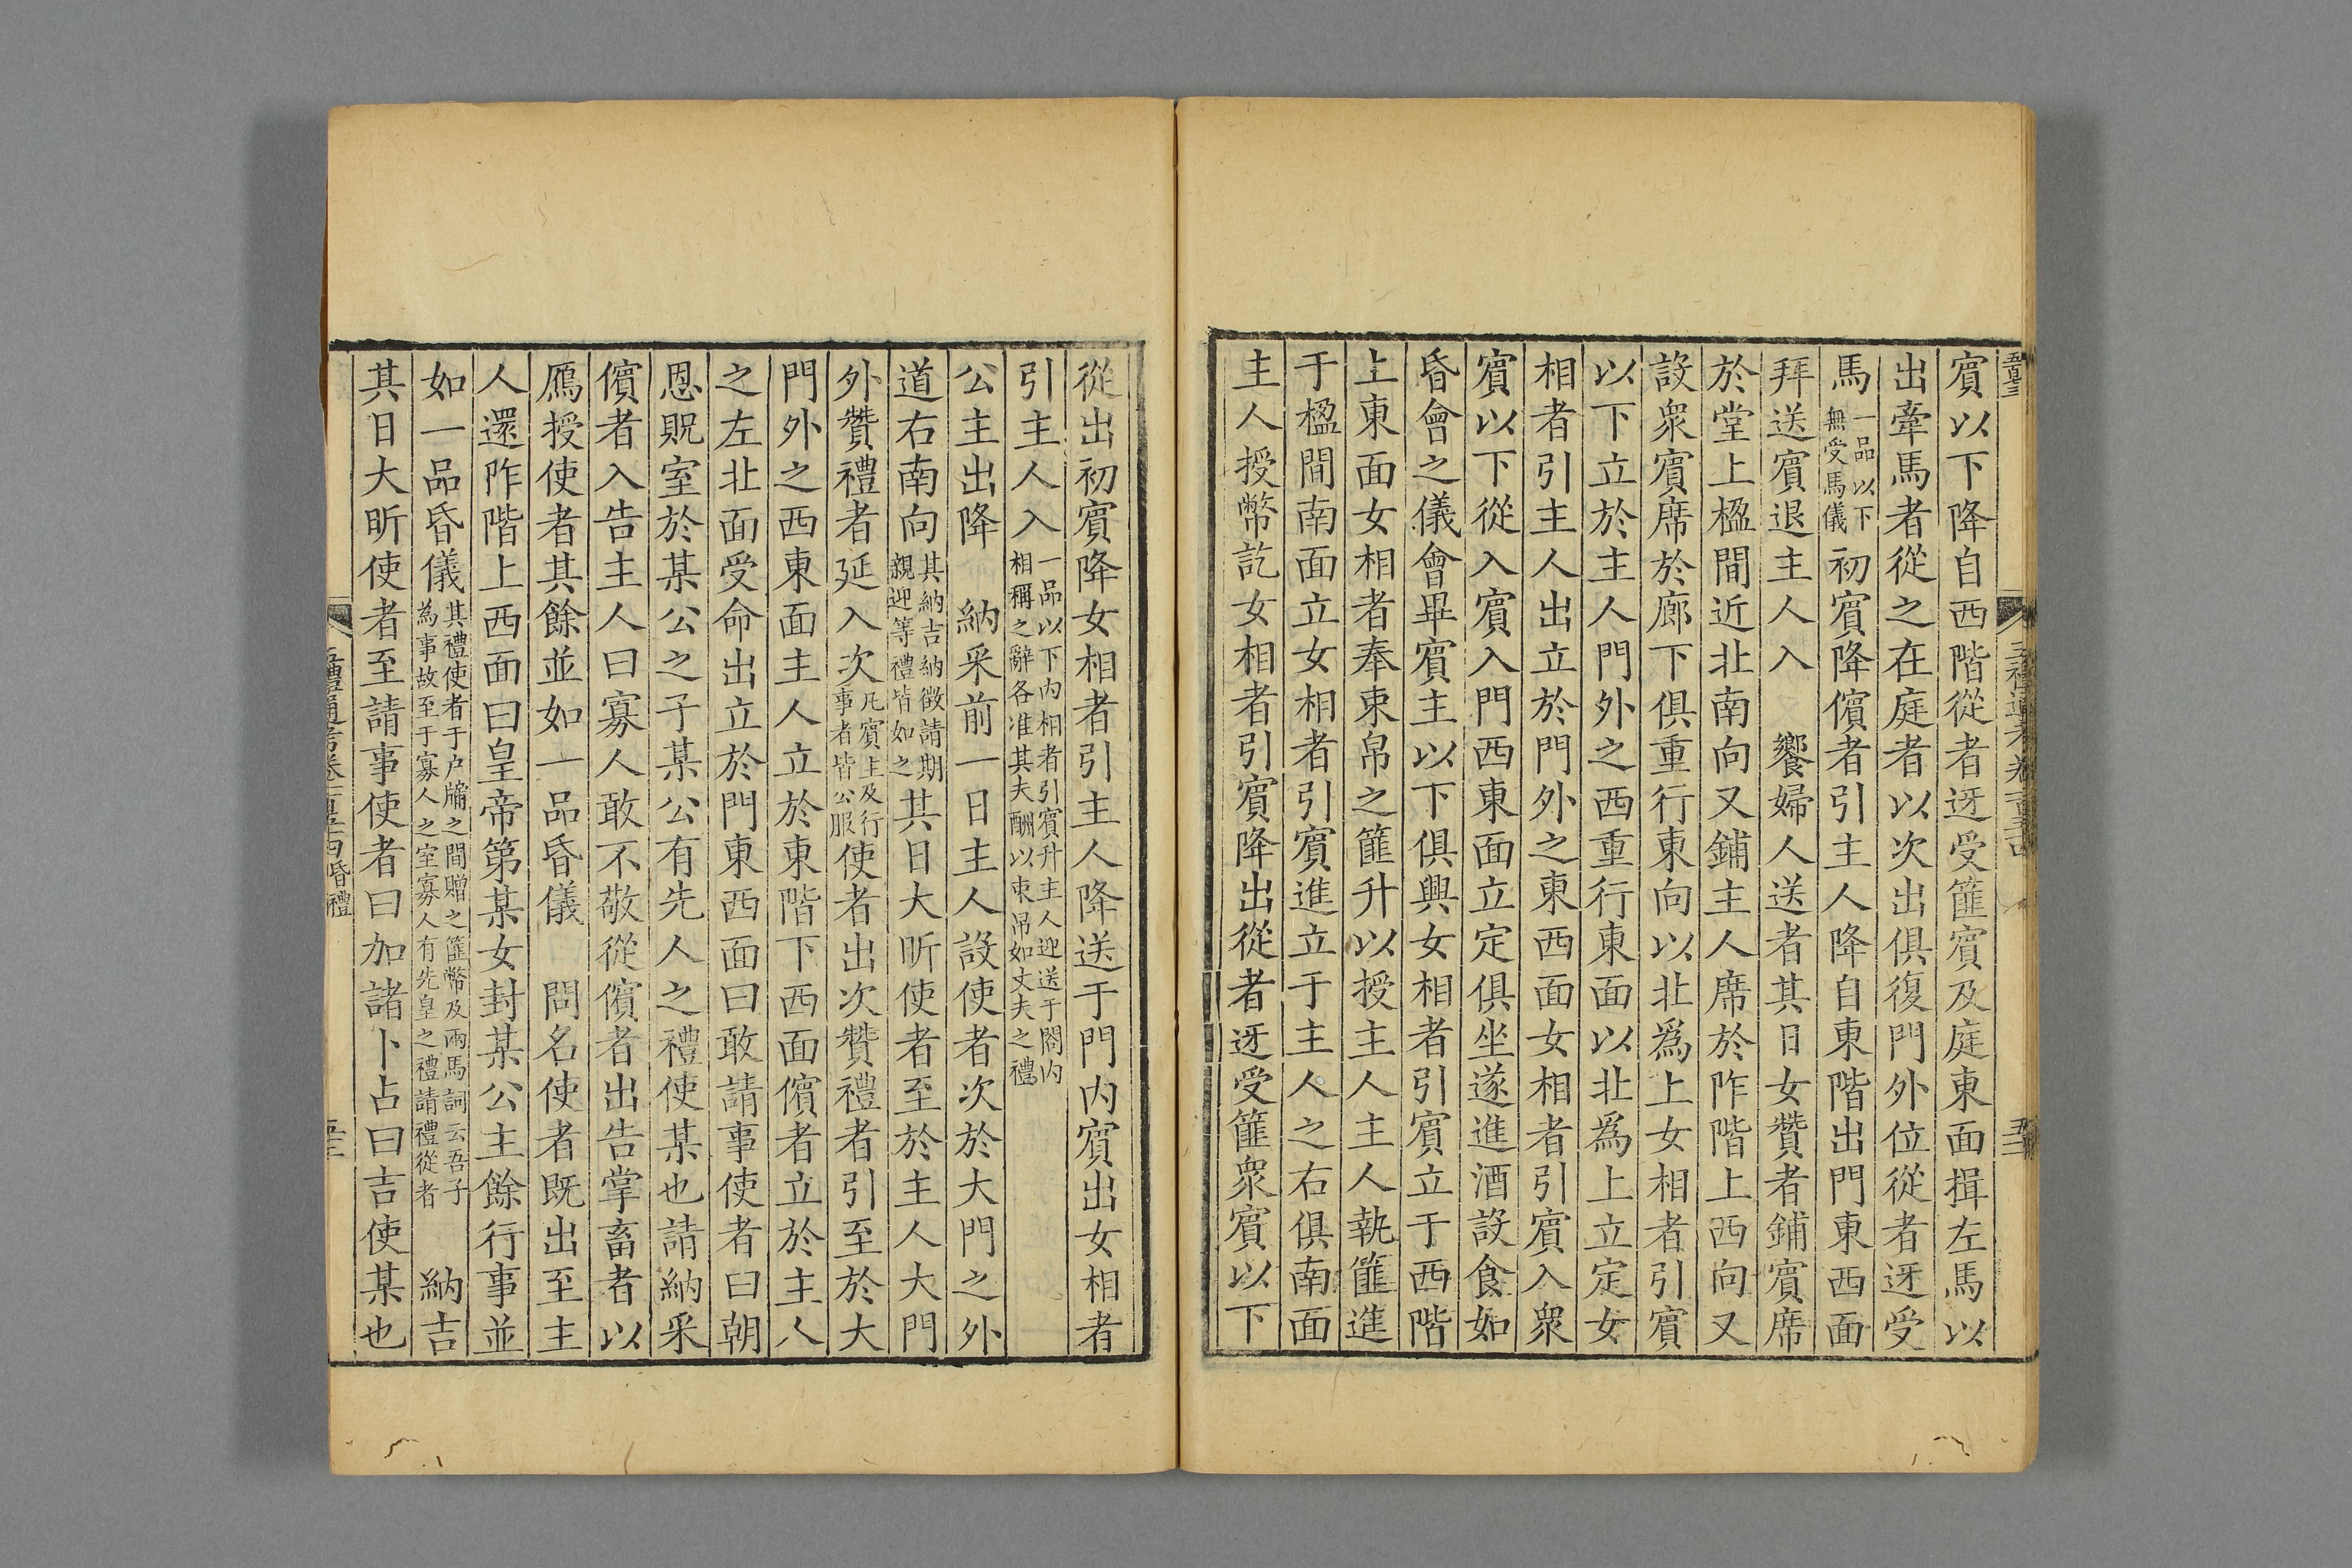 賔以下降自西階從者迓受篚賔及庭東面揖左馬以
出牽馬者從之在庭者以次出俱復門外位從者迓受
馬一品以下無受馬儀初賔降儐者引主人降自東階出門東西面
拜送賔退主人入 饗婦人送者其日女贊者鋪賔席
於堂上楹間近北南向又鋪主人席於阼階上西向又
設衆賔席於廊下俱重行東向以北爲上女相者引賔
以下立於主人門外之西重行東面以北爲上立定女
相者引主人出立於門外之東西面女相者引賔入衆
賔以下從入賔入門西東面立定俱坐遂進酒設食如
昏會之儀會畢賔主以下俱興女相者引賔立于西階
上東面女相者奉束帛之篚升以授主人主人執篚進
于楹間南面立女相者引賔進立于主人之右俱南面
主人授幣訖女相者引賔降出從者迓受篚衆賔以下
從出初賔降女相者引主人降送于門内賔出女相者
引主人入一品以下内相者引賔升主人迎送于閤内相稱之辭各准其夫酬以束帛如丈夫之禮
公主出降 納采前一日主人設使者次於大門之外
道右南向其納吉納徵請期親迎等禮皆如之其日大昕使者至於主人大門
外贊禮者延入次凡賔主及行事者皆公服使者出次贊禮者引至於大
門外之西東面主人立於東階下西面儐者立於主人
之左北面受命出立於門東西面曰敢請事使者曰朝
恩貺室於某公之子某公有先人之禮使某也請納采
儐者入告主人曰寡人敢不敬從儐者出告掌畜者以
鴈授使者其餘並如一品昏儀 問名使者既出至主
人還阼階上西面曰皇帝第某女封某公主餘行事並
如一品昏儀其禮使者于户牖之間贈之篚幣及兩馬詞云吾子為事故至于寡人之室寡人有先皇之禮請禮從者 納吉
其日大昕使者至請事使者曰加諸卜占曰吉使某也